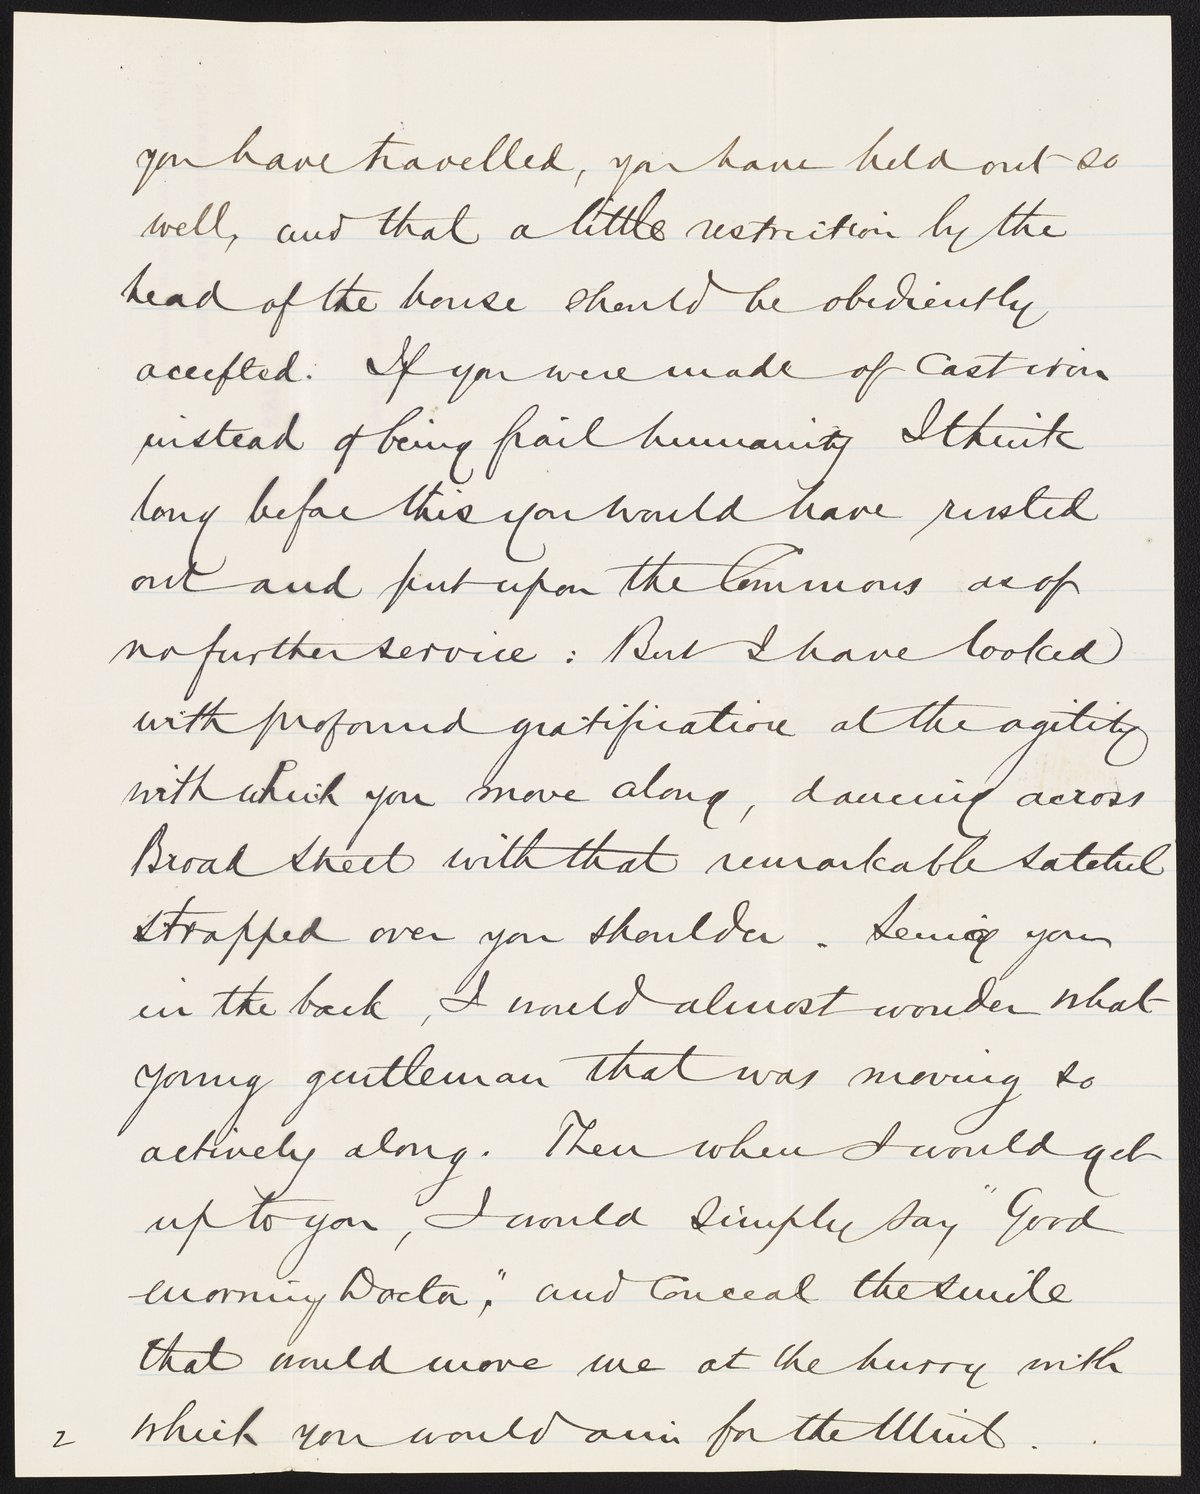 you have travelled, you have held out so
well, and that a little restriction by the
head of the house should be obediently
accepted. If you were made of Cast iron
instead of being frail humanity I think
long before this you would have rusted
out and put upon the Commons as of
no further service : But I have looked
with profound gratification at the agility
with which you move along, dancing across
Broad Street with that remarkable satchel
strapped over your shoulder. Seeing you
in the back, I would almost wonder what
young gentleman that was moving so
actively along. Then when I would get
up to you, I would simply say "Good
morning Doctor", and Conceal the smile
that would move me at the hurry with
which you would aim for the Mint.
2